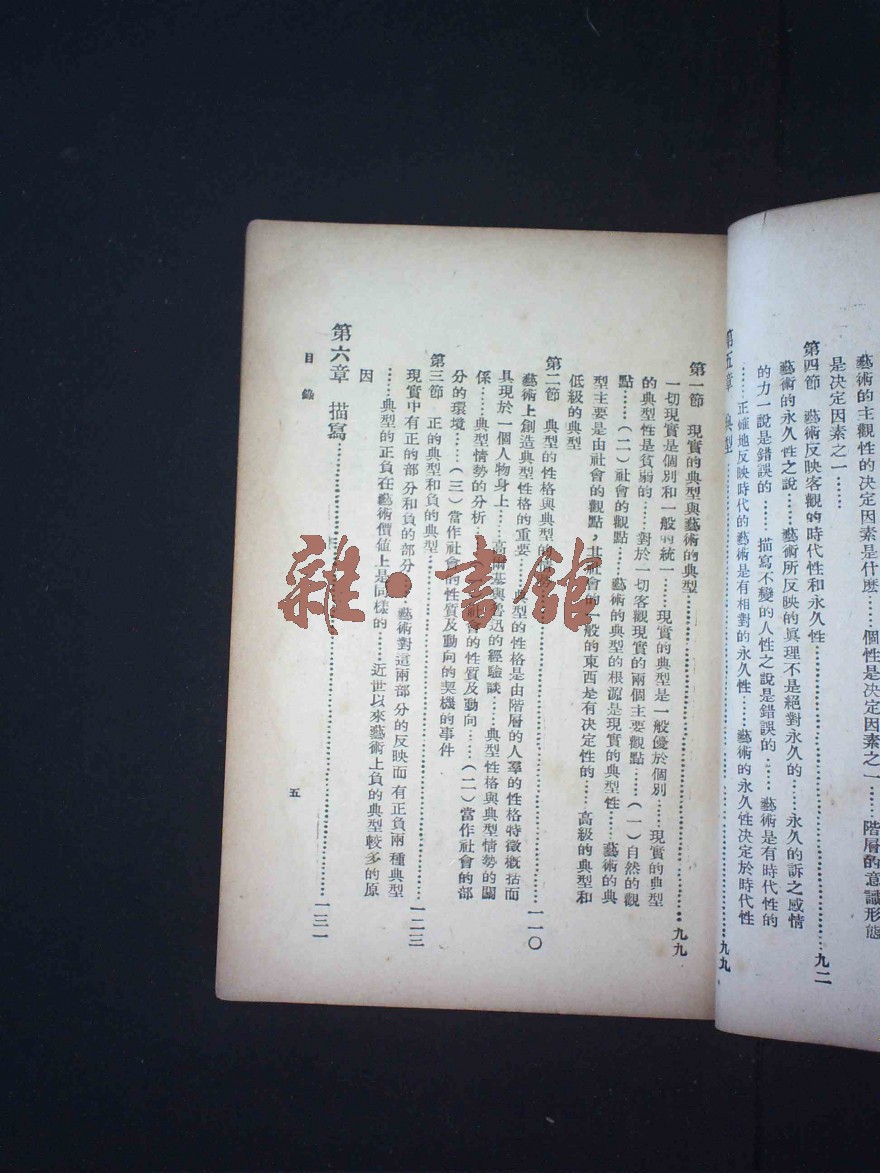 藝術的主觀性的決定因素是什麽……個性是決定因素之一……階層的意識形態
是決定因素之一……
第四節 藝術反映客觀的時代性和永久性……九二
藝術的永久性之說……藝術所反映的眞理不是絕對永久的……永久的訴之感情
的力一說是錯誤的……描寫不變的人性之說是錯誤的……藝術是有時代性的
……正確地反映時代的藝術是有相對的永久性……藝術的永久性決定於時代性
第五章 典型……九九
第一節 現實的典型與藝術的典型……九九
一切現實是個別和一般的統一……現實的典型是一般優於個別……現實的典型
的典型性是貧弱的……對於一切客觀現實的兩個主要觀點……(一)自然的觀
點……(二)社會的觀點……藝術的典型的根源是現實的典型性……藝術的典
型主要是由社會的觀點,其社會的一般的東西是有決定性的……高級的典型和
低級的典型
第二節 典型的性格與典型的情勢……一一〇
藝術上創造典型性格的重要……典型的性格是由階層的人羣的性格特徵槪括而
具現於一個人物身上……高爾基與魯迅的經驗談……典型性格與典型情勢的關
係……典型情勢的分析……社會的性質及動向……(二)當作社會的部
分的環境……(三)當作社會的性質及動向的契機的事件
第三節 正的典型和負的典型……一二三
現實中有正的部分和負的部分……藝術對這兩部分的反映而有正負兩種典型
……典型的正負在藝術價値上是同樣的……近世以來藝術上負的典型較多的原
因
第六章 描寫……一三一
目錄
五
雜·書館